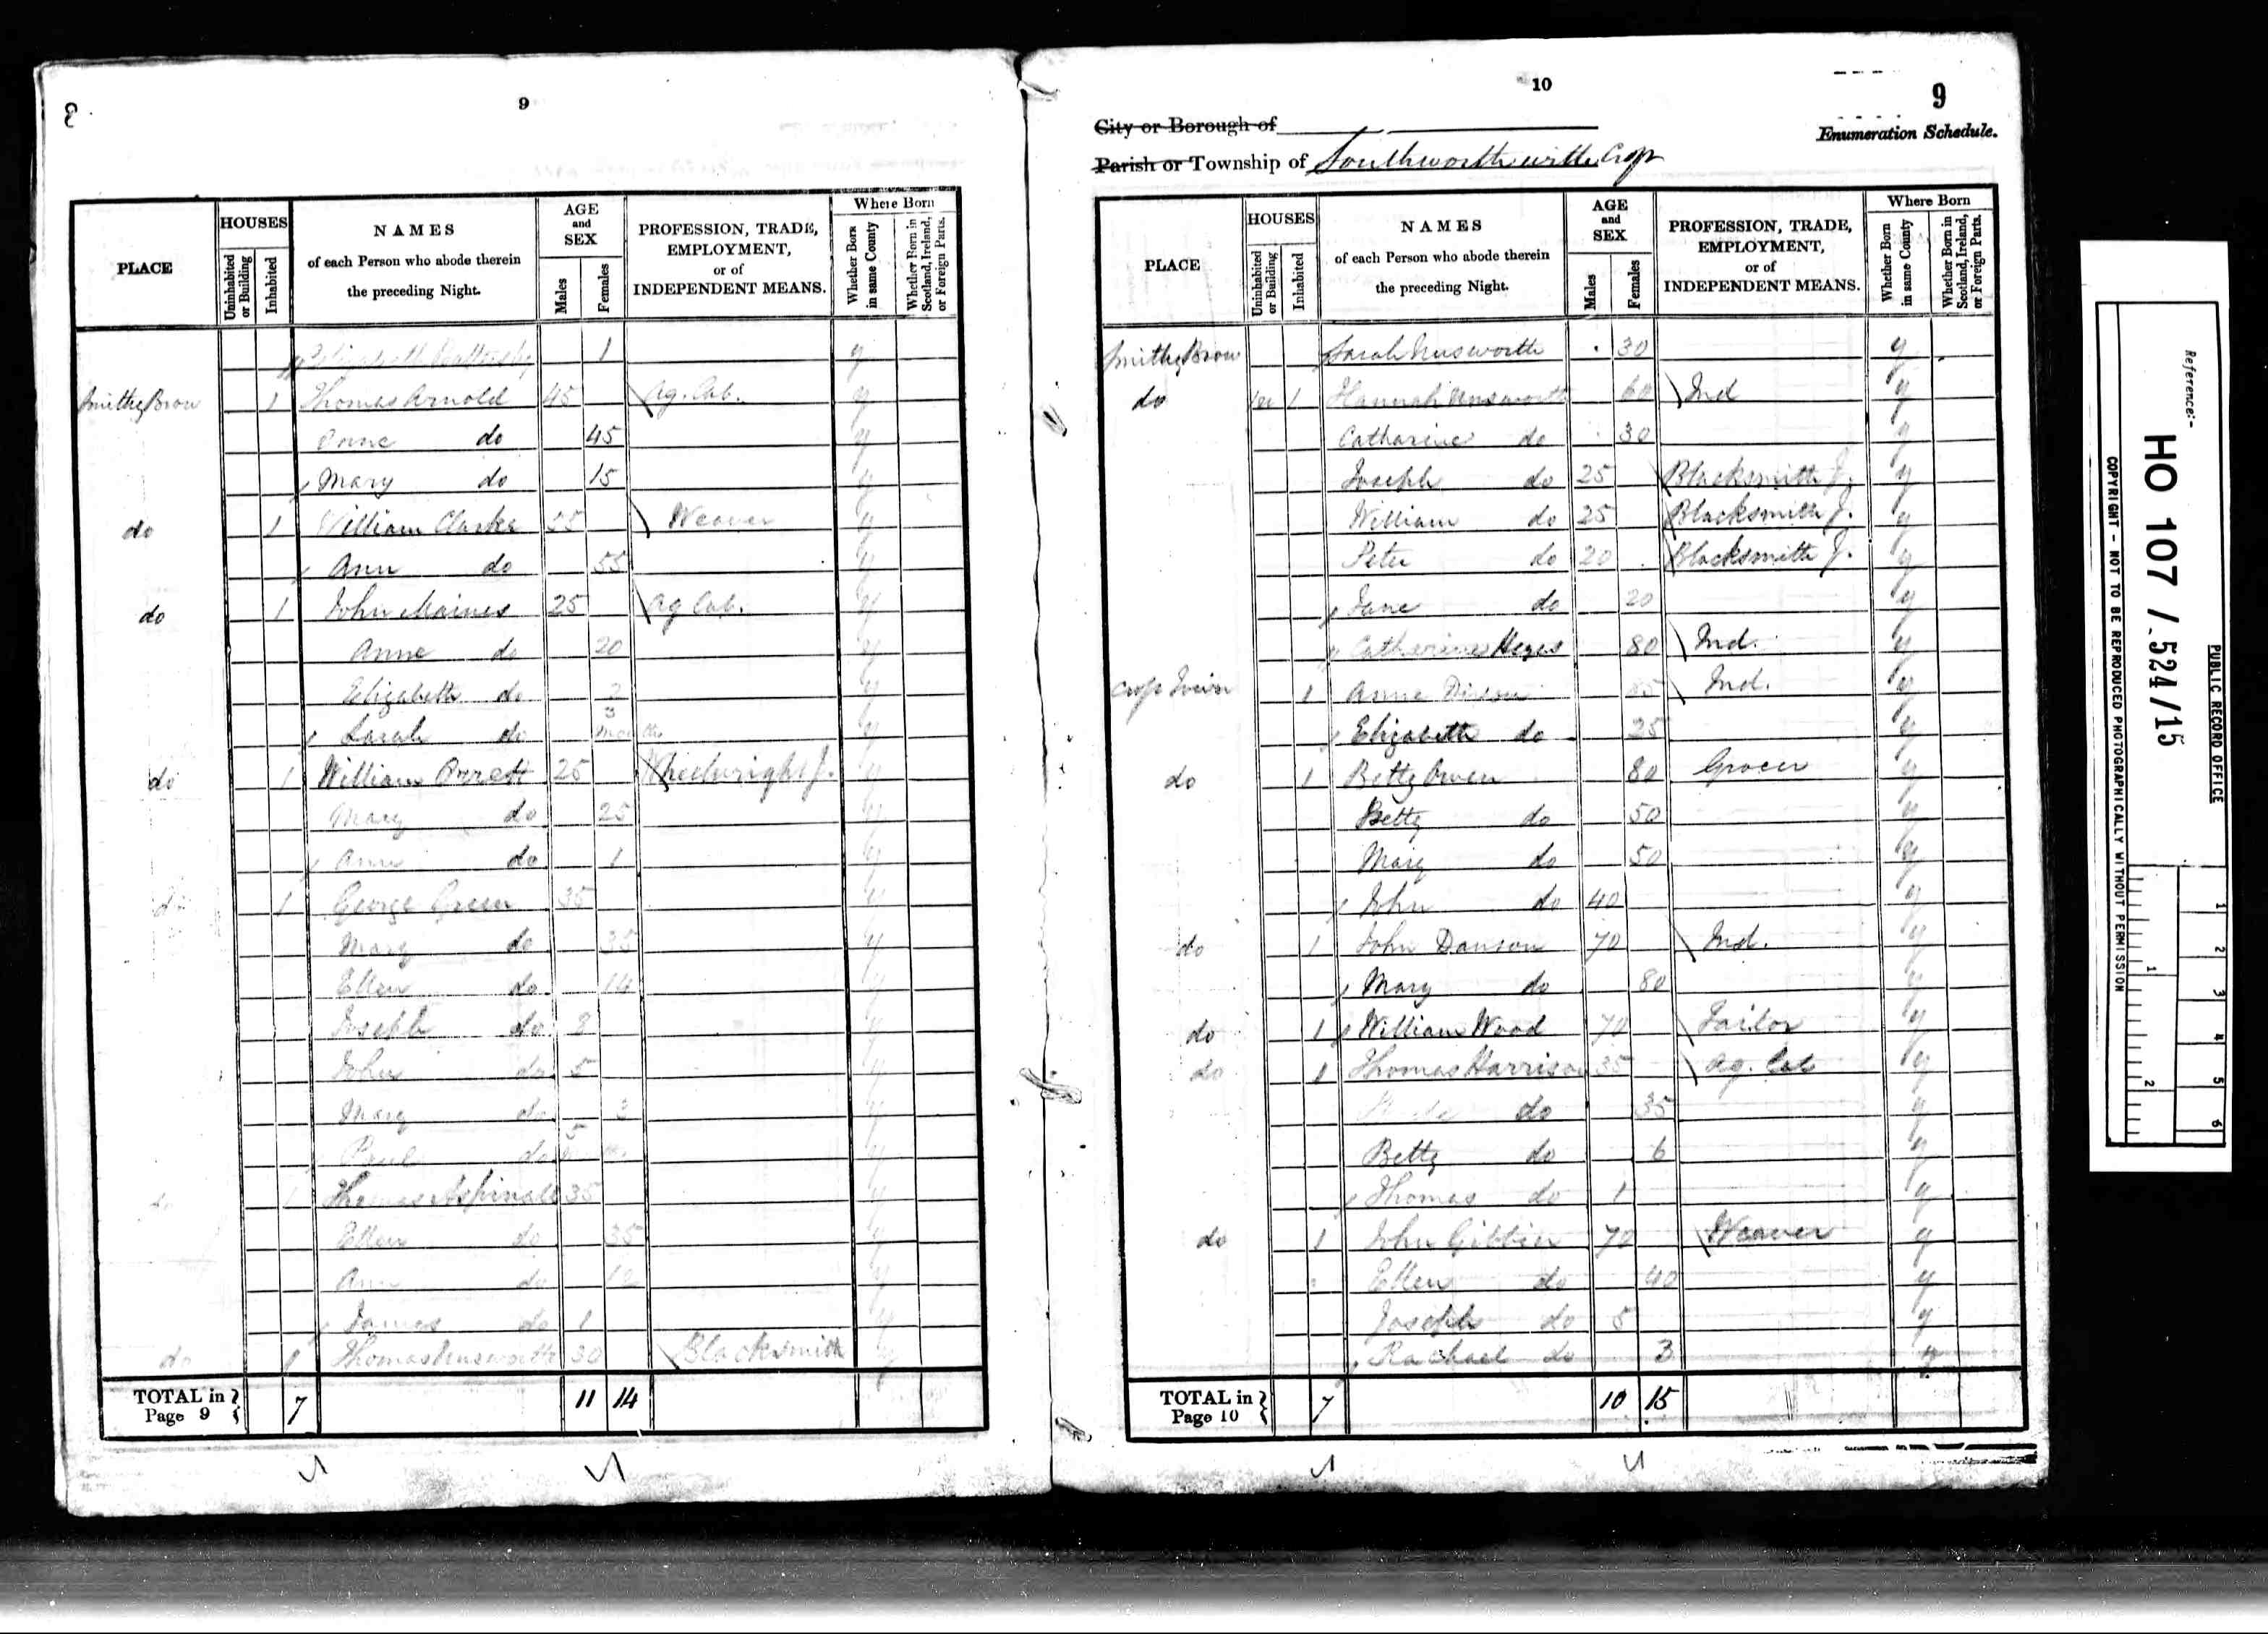 9
PLACE
HOUSES
Uninhabited or Building
Inhabited
NAMES
of each Person who abode therein
the preceding Night.
AGE
and
SEX
Males
Females
PROFESSION, TRADE,
EMPLOYMENT,
or of
INDEPENDENT MEANS.
Where Born
Whether Born in same County
Whether Born in Scotland, Ireland, or Foreign Parts.
Elizabeth 1 y
Smithy Brow 1 Thomas Arnold 45 Ag. Lab. y
do 45 y
Mary do 15 y
do 1 William Clarke 55 Weaver y
Ann do 55 y
do 1 John 25 Ag Lab. y
Anne do 20 y
Elizabeth do 2 y
Sarah do 3 months y
do 1 William 25 Wheelwright J. y
Mary do 25 y
Ann do 1 y
do 1 George Green 35 y
Mary do 35 y
Ellen do 14 y
Joseph do 8 y
John do 5 y
Mary do 3 y
Paul do 5 m y
do 1 Thomas Aspinall 35 y
Ellen do 35 y
Ann do 12 y
James do 1 y
do 1 Thomas Unsworth 30 Blacksmith y
TOTAL in
Page 9
7 11 14
10
9
City or Borough of
Enumeration Schedule.
Parish or Township of Southworth with Croft
PLACE
HOUSES
Uninhabited or Building
Inhabited
NAMES
of each Person who abode therein
the preceding Night.
AGE
and
SEX
Males
Females
PROFESSION, TRADE,
EMPLOYMENT,
or of
INDEPENDENT MEANS.
Where Born
Whether Born in same County
Whether Born in Scotland, Ireland, or Foreign Parts.
Smithy Brow Sarah Unsworth 30 y
do 1 Hannah Unsworth 60 Ind y
Catharine do 30 y
Joseph do 25 Blacksmith J. y
William do 25 Blacksmith J. y
Peter do 20 Blacksmith J. y
Jane do 20 y
Catherine Heyes 80 Ind. y
1 Anne Ind. y
Elizabeth do 25 y
do 1 Betty Owen 80 Grocer y
Betty do 50 y
Mary do 50 y
John do 40 y
do 1 John Danson 70 Ind. y
Mary do 80 y
do 1 William Wood 70 Tailor y
do 1 Thomas Harrison 35 Ag. Lab y
do 35 y
Betty do 6 y
Thomas do 1 y
do 1 John 70 Weaver y
Ellen do 40 y
Joseph do 5 y
Rachael do 3 y
TOTAL in
Page 10
7 10 15
Reference:-
HO 107 / 524/15
PUBLIC RECORD OFFICE
COPYRIGHT - NOT TO BE REPRODUCED PHOTOGRAPHICALLY WITHOUT PERMISSION
1
2
3
4
5
6
1
2